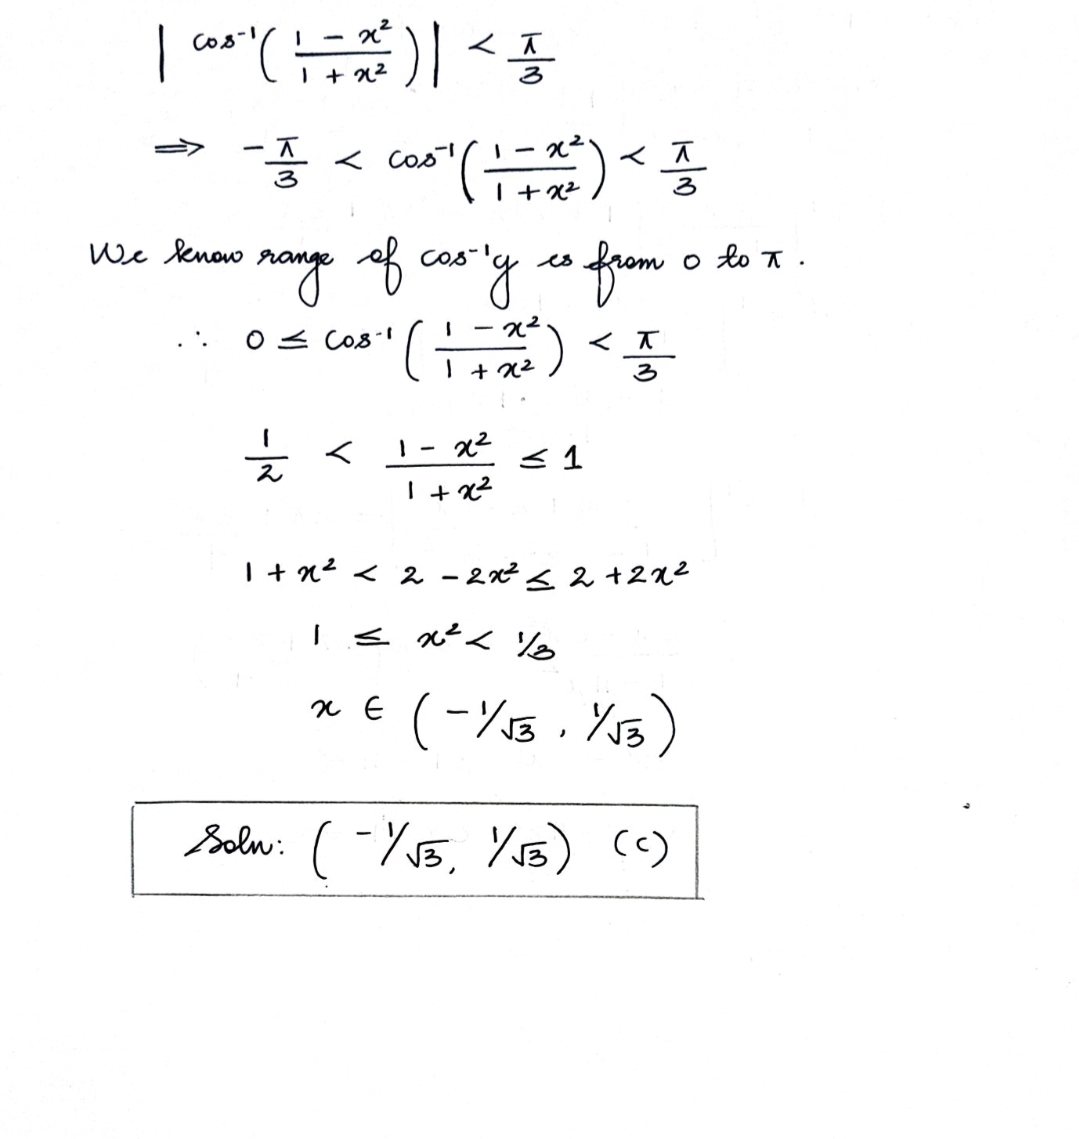 | cos⁻¹( (1 - x²)/(1 + x²) ) | < π/3
⟹ -π/3 < cos⁻¹( (1 - x²)/(1 + x²) ) < π/3
We know range of cos⁻¹y is from 0 to π.
∴ 0 ≤ cos⁻¹( (1 - x²)/(1 + x²) ) < π/3
1/2 < (1 - x²)/(1 + x²) ≤ 1
1 + x² < 2 - 2x² ≤ 2 + 2x²
1 ≤ x² < 1/3
x ∈ (-1/√3, 1/√3)
Soln: (-1/√3, 1/√3) (C)